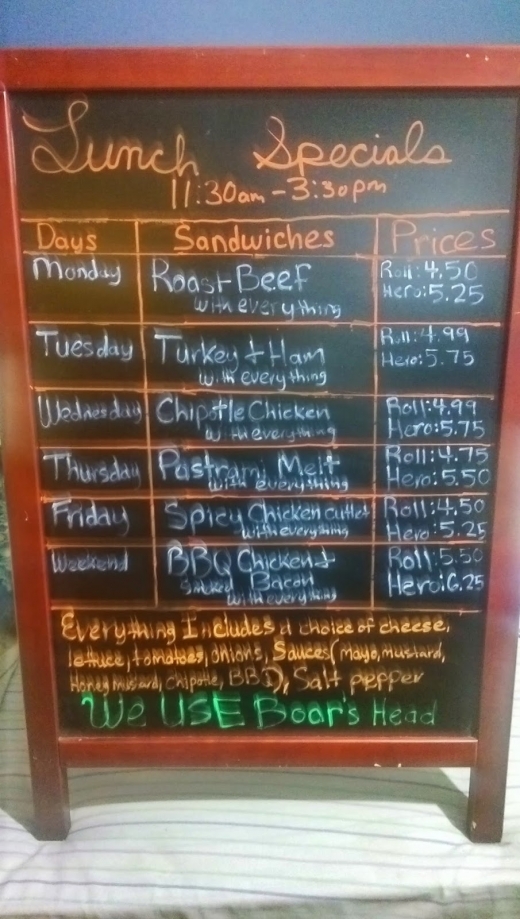 Lunch Specials
11:30am-3:30pm
Days Sandwiches Prices
Monday Roast Beef Roll:4.50
with everything Hero:5.25
Tuesday Turkey + Ham Roll:4.99
with everything Hero:5.75
Wednesday Chipotle Chicken Roll:4.99
with everything Hero:5.75
Thursday Pastrami Melt Roll:4.75
with everything Hero:5.50
Friday Spicy Chicken cutlet Roll:4.50
with everything Hero:5.25
Weekend BBQ Chicken + Roll:5.50
Smoked Bacon Hero:6.25
with everything
Everything Includes a choice of cheese,
lettuce, tomatoes, onions, Sauces(mayo, mustard,
Honey mustard, chipotle, BBQ), Salt pepper
We USE Boar's Head